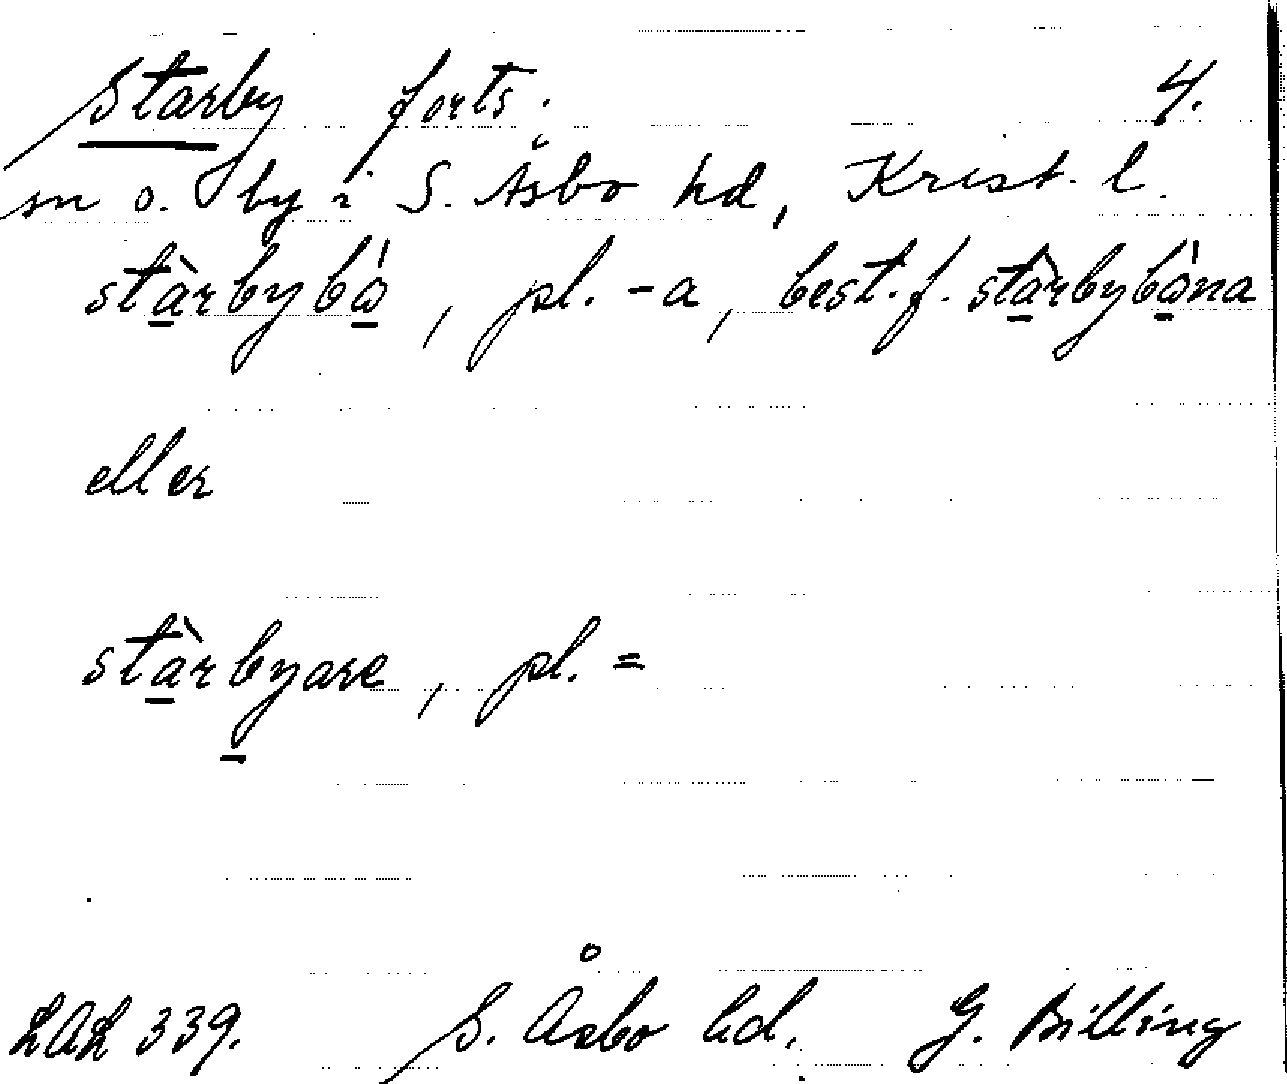 Starby forts. 4.
sn o. by i S. Åsbo hd, Krist. l.
stàrbybó, pl. -a, best. f. stàrbybóna
eller
stàrbyare, pl. =
LAL 339. S. Åsbo hd. G. Billing